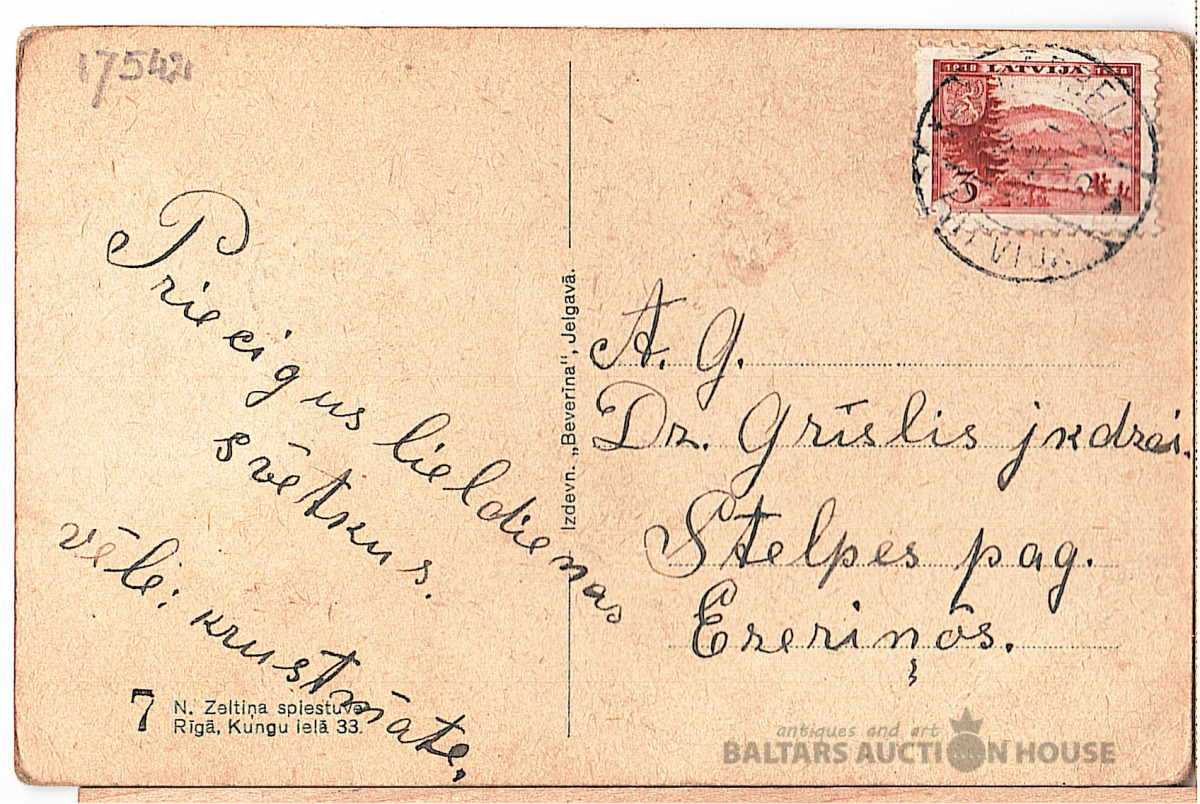 17542
1918 LATVIJA 1938
3
LATVIJA
Priecigus lieldienas
svētkus.
vēlē: krustmāte.
7 N. Zeltiņa spiestuve
Rīgā, Kungu ielā 33.
Izdevn. „Beverīna“, Jelgavā.
A. G.
Dz. Grīslis jkdzei.
Stelpes pag.
Ezeriņōs.
antiques and art
BALTARS AUCTION HOUSE